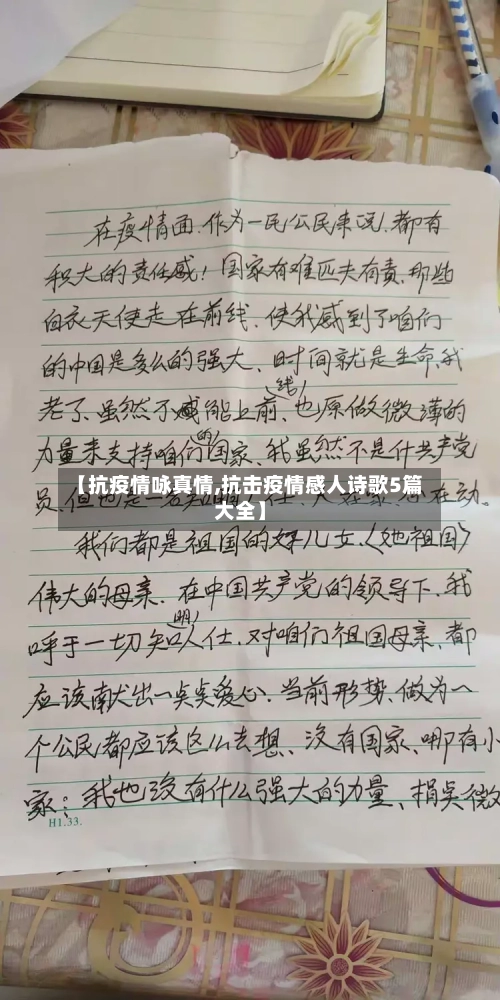 在疫情面.作为一民公民来说.都有
积大的责任感！国家有难匹夫有责.那些
白衣天使走在前线.使我感到了咱们
的中国是多么的强大、时间就是生命.我
线
老了.虽然不能上前、也原做微薄的
的
力量来支持咱们国家、我虽然不是什共产党
员.但也是一名
【抗疫情咏真情,抗击疫情感人诗歌5篇
大全】
在动。
我们都是祖国的好儿女.〈她祖国〉
伟大的母亲.在中国共产党的领导下.我
明
呼于一切知人仕.对咱们祖国母亲、都
应该献出一点点爱心.当前形势、做为一
个公民都应该这么去想、没有国家、哪有小
家；我也没有什么强大的力量、捐点微
H1.33.